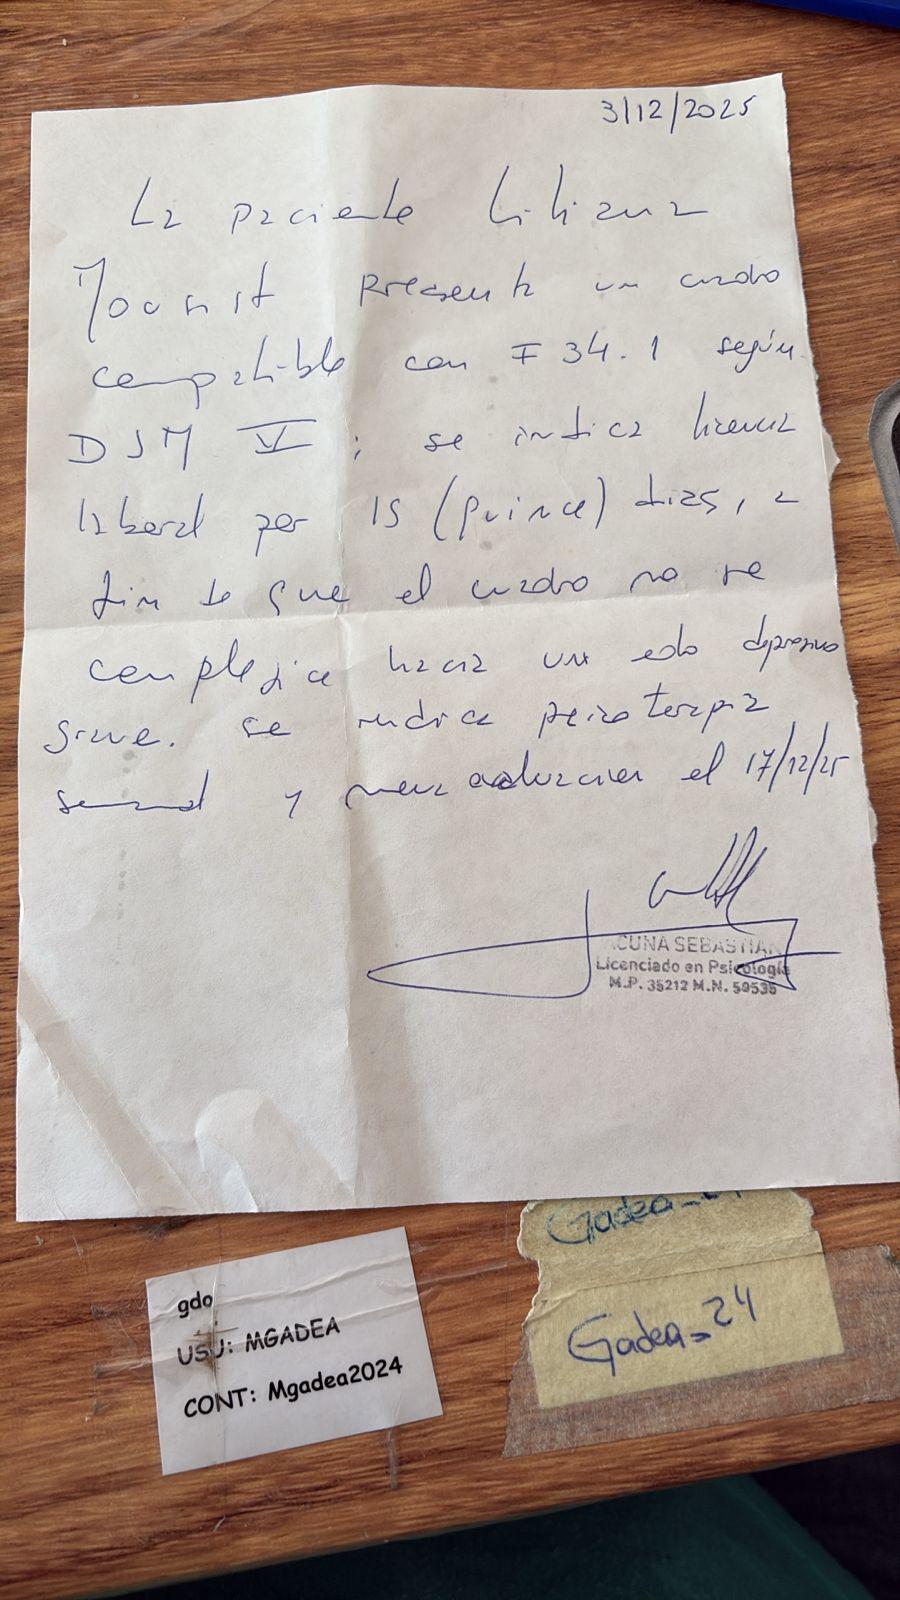 3/12/2025
La paciente Liliana
presenta un cuadro
compatible con F 34.1 según
DSM V; se indica licencia
laboral por 15 (quince) días, a
fin de que el cuadro no se
complejice hacia un edo depresivo
grave. se indica psicoterapia
semanal y nueva evaluación el 17/12/25
ACUÑA SEBASTIAN
Licenciado en Psicología
M.P. 35212 M.N. 59535
gdo
USU: MGADEA
CONT: Mgadea2024
Gadea_24